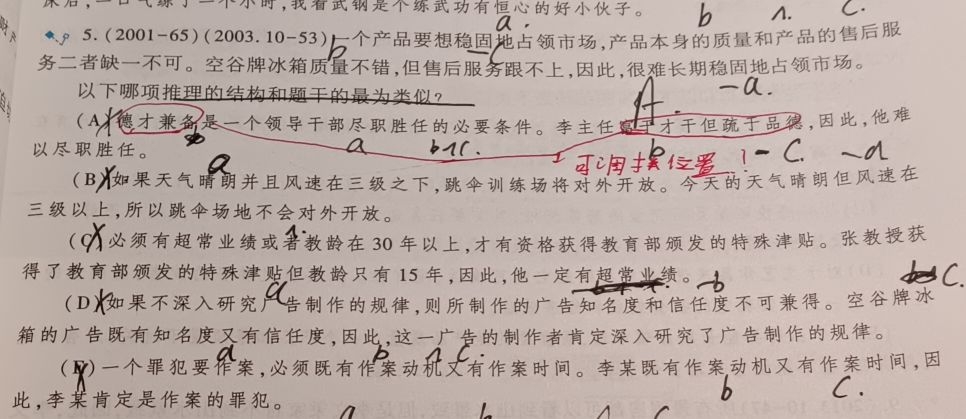 床后,一口气练了一个小时,我看武钢是个练武功有恒心的好小伙子。
a. b ∧. C.
5.(2001-65)(2003.10-53)一个产品要想稳固地占领市场,产品本身的质量和产品的售后服
b -C
务二者缺一不可。空谷牌冰箱质量不错,但售后服务跟不上,因此,很难长期稳固地占领市场。
以下哪项推理的结构和题干的最为类似? A. -a.
(A)德才兼备是一个领导干部尽职胜任的必要条件。李主任富于才干但疏于品德,因此,他难
以尽职胜任。 a b∧C. b 可调换位置! -C. -a
(B)如果天气晴朗并且风速在三级之下,跳伞训练场将对外开放。今天的天气晴朗但风速在
a
三级以上,所以跳伞场地不会对外开放。
(C)必须有超常业绩或者教龄在30年以上,才有资格获得教育部颁发的特殊津贴。张教授获
得了教育部颁发的特殊津贴但教龄只有15年,因此,他一定有超常业绩。
a -b C.
(D)如果不深入研究广告制作的规律,则所制作的广告知名度和信任度不可兼得。空谷牌冰
箱的广告既有知名度又有信任度,因此,这一广告的制作者肯定深入研究了广告制作的规律。
a b ∧ C.
(E)一个罪犯要作案,必须既有作案动机又有作案时间。李某既有作案动机又有作案时间,因
此,李某肯定是作案的罪犯。 b C.